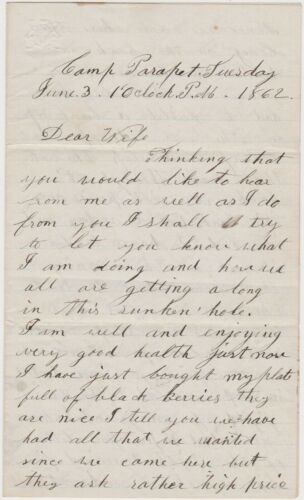 Camp Parapet. Tuesday
June. 3. 1 Oclock. P.M. 1862.
Dear Wife
Thinking that
you would like to hear
from me as well as I do
from you I shall try
to let you know what
I am doing and how we
all are getting along
in this sunken hole.
I am well and enjoying
very good health just now
I have just bought my plate
full of black berries they
are nice I tell you we have
had all that we wanted
since we came here but
they ask rather high price